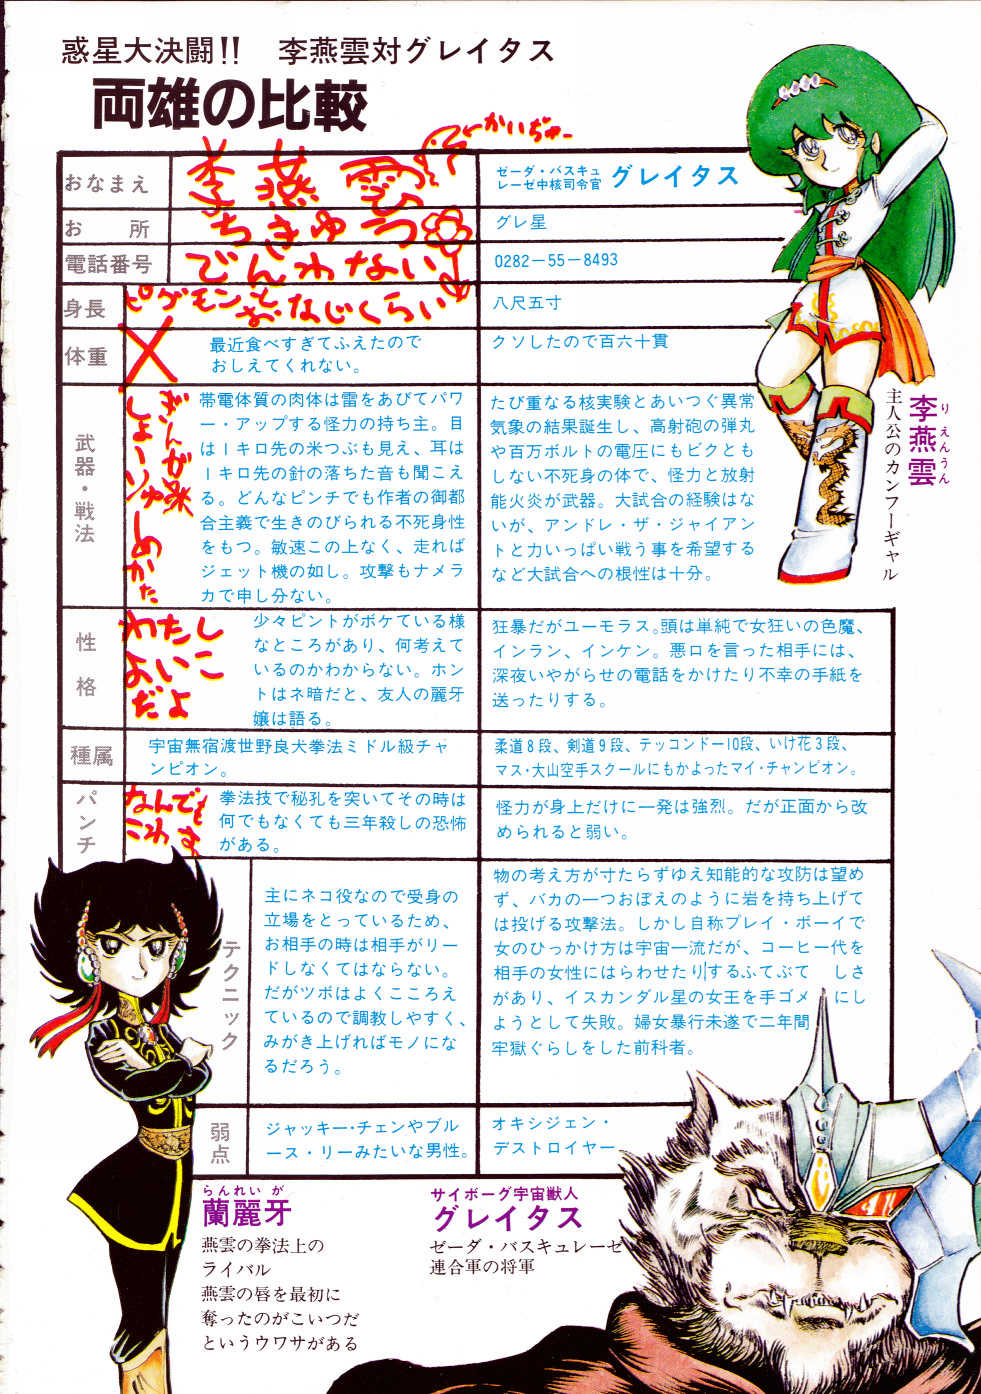 惑星大決闘!!　李燕雲対グレイタス
両雄の比較
←かいぢゅー
おなまえ
李燕雲
ゼーダ・バスキュ
レーゼ中核司令官
グレイタス
お所
ちきゅう
グレ星
電話番号
でんわない
0282－55－8493
身長
ピグモンとおなじくらい
八尺五寸
体重
最近食べすぎてふえたので
おしえてくれない。
クソしたので百六十貫
武器・戦法
ぎんが
しょーりゅー
しめかた
帯電体質の肉体は雷をあびてパワ
ー・アップする怪力の持ち主。目
は1キロ先の米つぶも見え、耳は
1キロ先の針の落ちた音も聞こえ
る。どんなピンチでも作者の御都
合主義で生きのびられる不死身性
をもつ。敏速この上なく、走れば
ジェット機の如し。攻撃もナメラ
カで申し分ない。
たび重なる核実験とあいつぐ異常
気象の結果誕生し、高射砲の弾丸
や百万ボルトの電圧にもビクとも
しない不死身の体で、怪力と放射
能火炎が武器。大試合の経験はな
いが、アンドレ・ザ・ジャイアン
トと力いっぱい戦う事を希望する
など大試合への根性は十分。
李燕雲
りえんうん
主人公のカンフーギャル
性格
わたし
よいこ
だよ
少々ピントがボケている様
なところがあり、何考えて
いるのかわからない。ホン
トはネ暗だと、友人の麗牙
嬢は語る。
狂暴だがユーモラス。頭は単純で女狂いの色魔、
インラン、インケン。悪口を言った相手には、
深夜いやがらせの電話をかけたり不幸の手紙を
送ったりする。
種属
宇宙無宿渡世野良犬拳法ミドル級チャ
ンピオン。
柔道8段、剣道9段、テッコンドー10段、いけ花3段、
マス・大山空手スクールにもかよったマイ・チャンピオン。
パンチ
なんでも
こわす
拳法技で秘孔を突いてその時は
何でもなくても三年殺しの恐怖
がある。
怪力が身上だけに一発は強烈。だが正面から改
められると弱い。
テクニック
主にネコ役なので受身の
立場をとっているため、
お相手の時は相手がリー
ドしなくてはならない。
だがツボはよくこころえ
ているので調教しやすく、
みがき上げればモノにな
るだろう。
物の考え方が寸たらずゆえ知能的な攻防は望め
ず、バカの一つおぼえのように岩を持ち上げて
は投げる攻撃法。しかし自称プレイ・ボーイで
女のひっかけ方は宇宙一流だが、コーヒー代を
相手の女性にはらわせたりするふてぶて　しさ
があり、イスカンダル星の女王を手ゴメ　にし
ようとして失敗。婦女暴行未遂で二年間
牢獄ぐらしをした前科者。
弱点
ジャッキー・チェンやブル
ース・リーみたいな男性。
オキシジェン・
デストロイヤー
らんれいが
蘭麗牙
燕雲の拳法上の
ライバル
燕雲の唇を最初に
奪ったのがこいつだ
というウワサがある
サイボーグ宇宙獣人
グレイタス
ゼーダ・バスキュレーゼ
連合軍の将軍